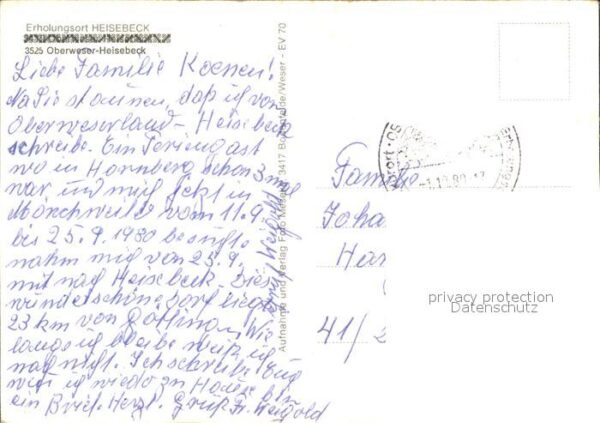 Erholungsort HEISEBECK
3525 Oberweser-Heisebeck
Liebe Familie Koenen!
Na Sie staunen, daß ich von
Oberweserland - Heisebeck
schreibe. Ein Feriengast
wo in Hornberg schon 3 mal
war und mich jetzt in
Mönchweiler vom 11.9.
bis 25.9.1980 besuchte
nahm mich von 25.9.
mit nach Heisebeck. Dies
wunderschöne Dorf liegt
23 km von Göttingen. Wie
lange ich bleibe weiß ich
nach nicht. Ich schreibe Euch
wenn ich wieder zu Hause bin
ein Brief. Herzl. Grüße Fr. Weigold
Aufnahme und Verlag Foto 3417 /Weser - EV 70
Familie
Joha
Har
41/2
privacy protection
Datenschutz